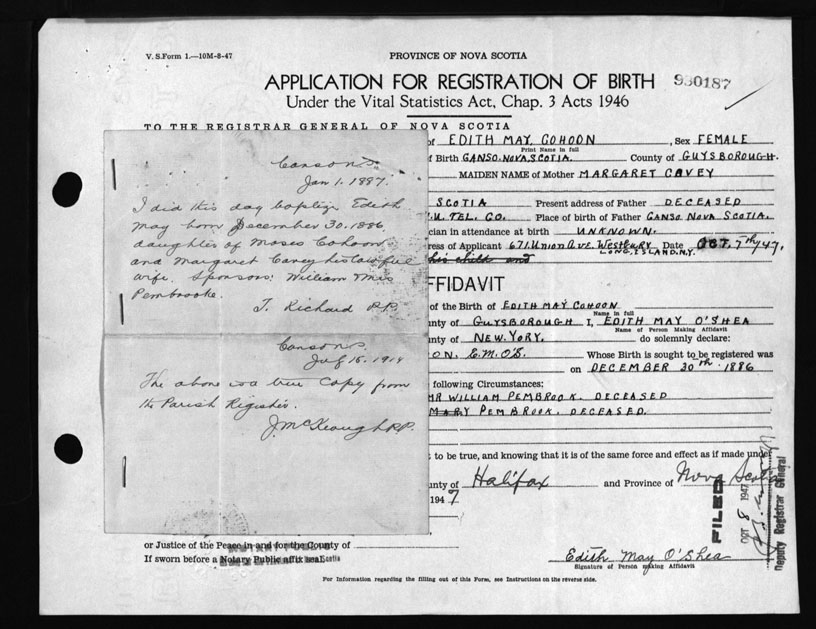 V. S. Form 1.—10M-8-47
PROVINCE OF NOVA SCOTIA
APPLICATION FOR REGISTRATION OF BIRTH
930187
Under the Vital Statistics Act, Chap. 3 Acts 1946
TO THE REGISTRAR GENERAL OF NOVA SCOTIA
of EDITH MAY COHOON, Sex FEMALE
Print Name in full
of Birth CANSO. NOVA SCOTIA. County of GUYSBOROUGH.
MAIDEN NAME of Mother MARGARET CAVEY
SCOTIA Present address of Father DECEASED
U. TEL. CO. Place of birth of Father CANSO NOVA SCOTIA.
cian in attendance at birth UNKNOWN.
ress of Applicant 671. UNION AVE. WESTBURY Date OCT. 7TH/47.
LONG. ISLAND. N.Y.
his child and
FFIDAVIT
of the Birth of EDITH MAY COHOON
Name in full
nty of GUYSBOROUGH I, EDITH MAY O'SHEA
Name of Person Making Affidavit
nty of NEW. YORY. do solemnly declare:
ON. E.M.O'S. Whose Birth is sought to be registered was
on DECEMBER 30TH. 1886
following Circumstances:
MR WILLIAM PEMBROOK. DECEASED
MARY PEMBROOK. DECEASED.
to be true, and knowing that it is of the same force and effect as if made under
nty of Halifax and Province of Nova Scotia
1947
FILED
OCT 8 1947
Deputy Registrar General
or Justice of the Peace in and for the County of
If sworn before a Notary Public affix seal.
Edith May O'Shea
Signature of Person making Affidavit
For Information regarding the filling out of this Form, see Instructions on the reverse side.
Canso N.S.
Jan 1. 1887.
I did this day baptize Edith
May born December 30. 1886
daughter of Moses Cohoon
and Margaret Cavey his lawful
wife. Sponsors: William & Mrs
Pembrooke.
T. Richard P.P.
Canso N.S.
July 15. 1918
The above is a true copy from
the Parish Register.
J. McKeough P.P.